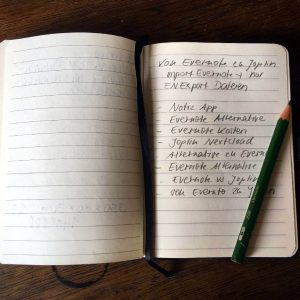 Von Evernote zu Joplin
Import Evernote → nur
ENExport Dateien
Notiz App
- Evernote Alternative
- Evernote Kosten
- Joplin Nextcloud
- Alternative zu Evern
- Evernote Alternative
- Evernote vs Joplin
- von Evernote zu Joplin